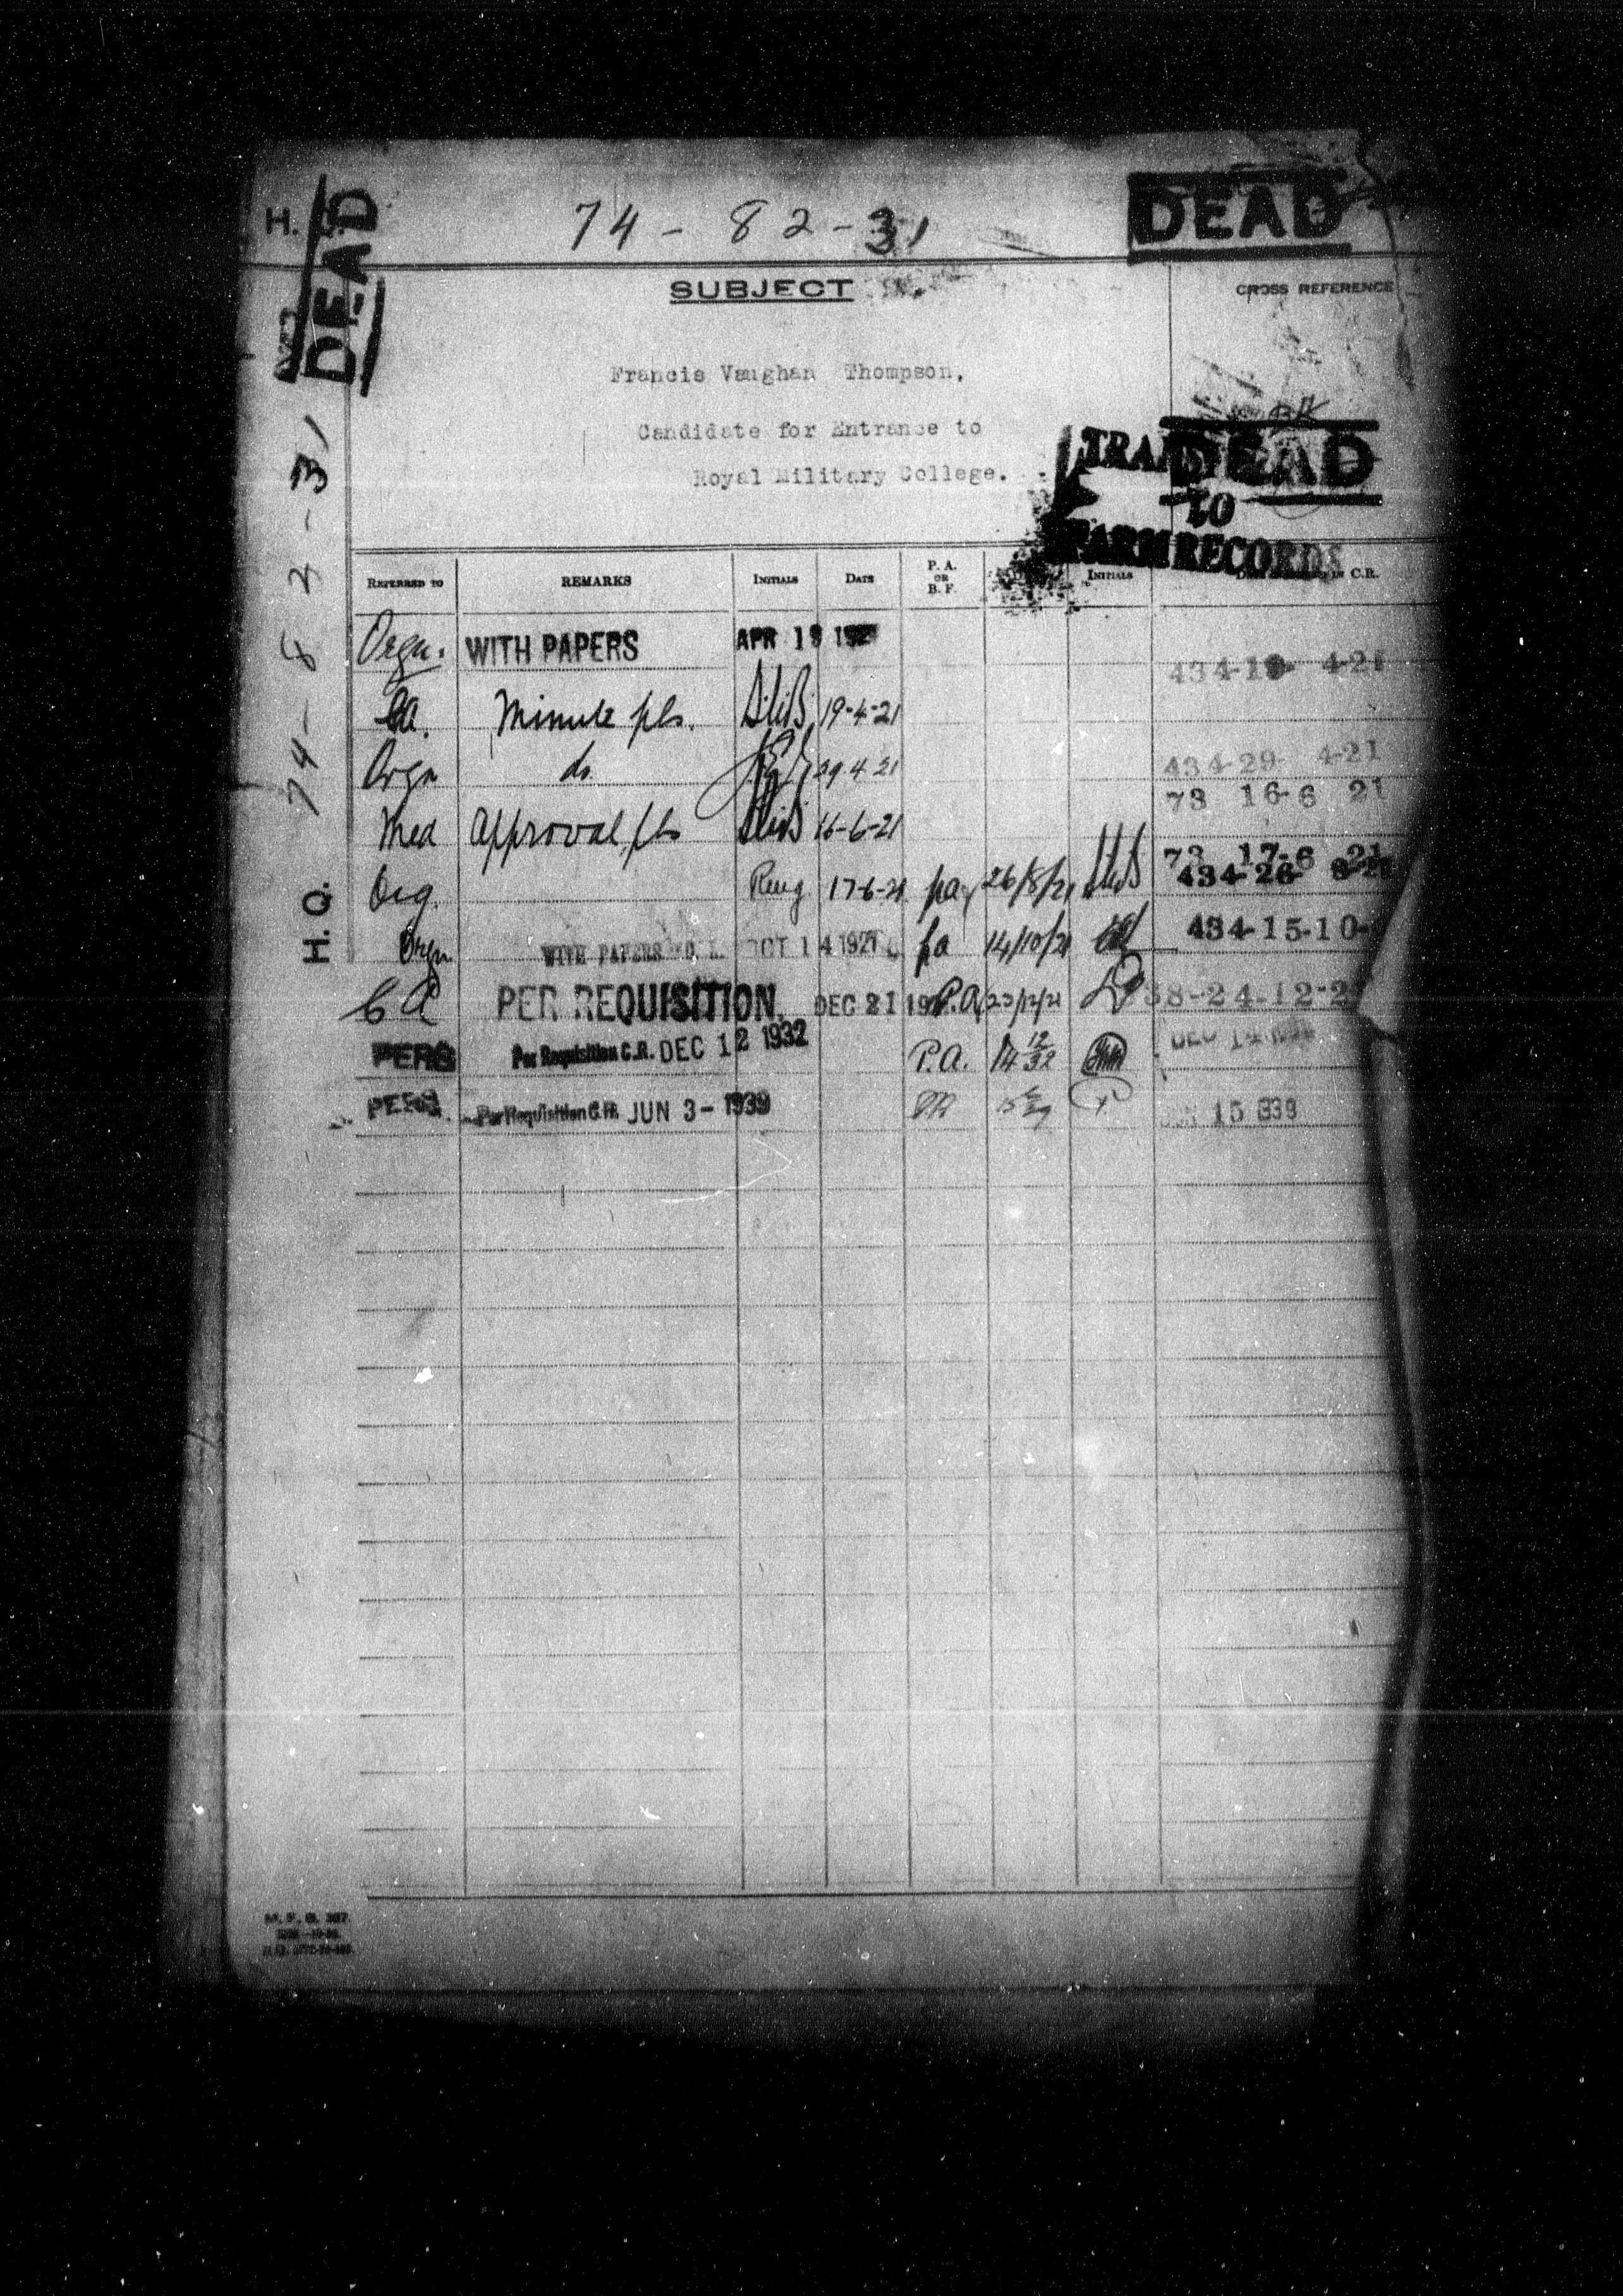 H.
74-82-31
DEAD
DEAD
SUBJECT
CROSS REFERENCE
Francis Vaughan Thompson,
Candidate for Entrance to
Royal Military College.
DEAD
TO
RECORDS
H.Q. 74-82-31
REFERRED TO REMARKS INITIALS DATE P. A. OR B. F. INITIALS IN C.R.
Orgn. WITH PAPERS APR 19 1921 434-19- 4-21
Minute pls. 19-4-21
Orgn do 29.4.21 434-29- 4-21
73 16-6 21
Med Approval pls 16-6-21
73 17-6 21
Org. 17-6-21 pa 26/8/21 434-26- 8-21
Orgn WITH PAPERS OCT 14 1921 pa 14/10/21 434-15-10-
CR PER REQUISITION. DEC 21 P.A. 23/12/21 38-24-12-2
PERS Per Requisition C.R. DEC 12 1932 P.A. 14 12/32 DEC 14
PERS. Per Requisition C.R. JUN 3- 1939 15 939
M. F. B. 307.